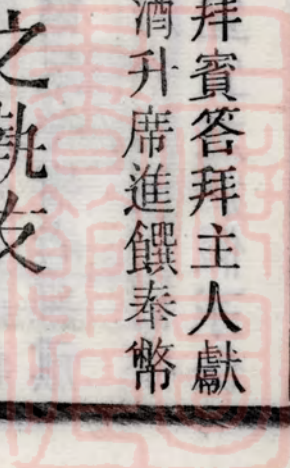 拜賓答拜主人獻
酒升席進饌奉幣
之執友